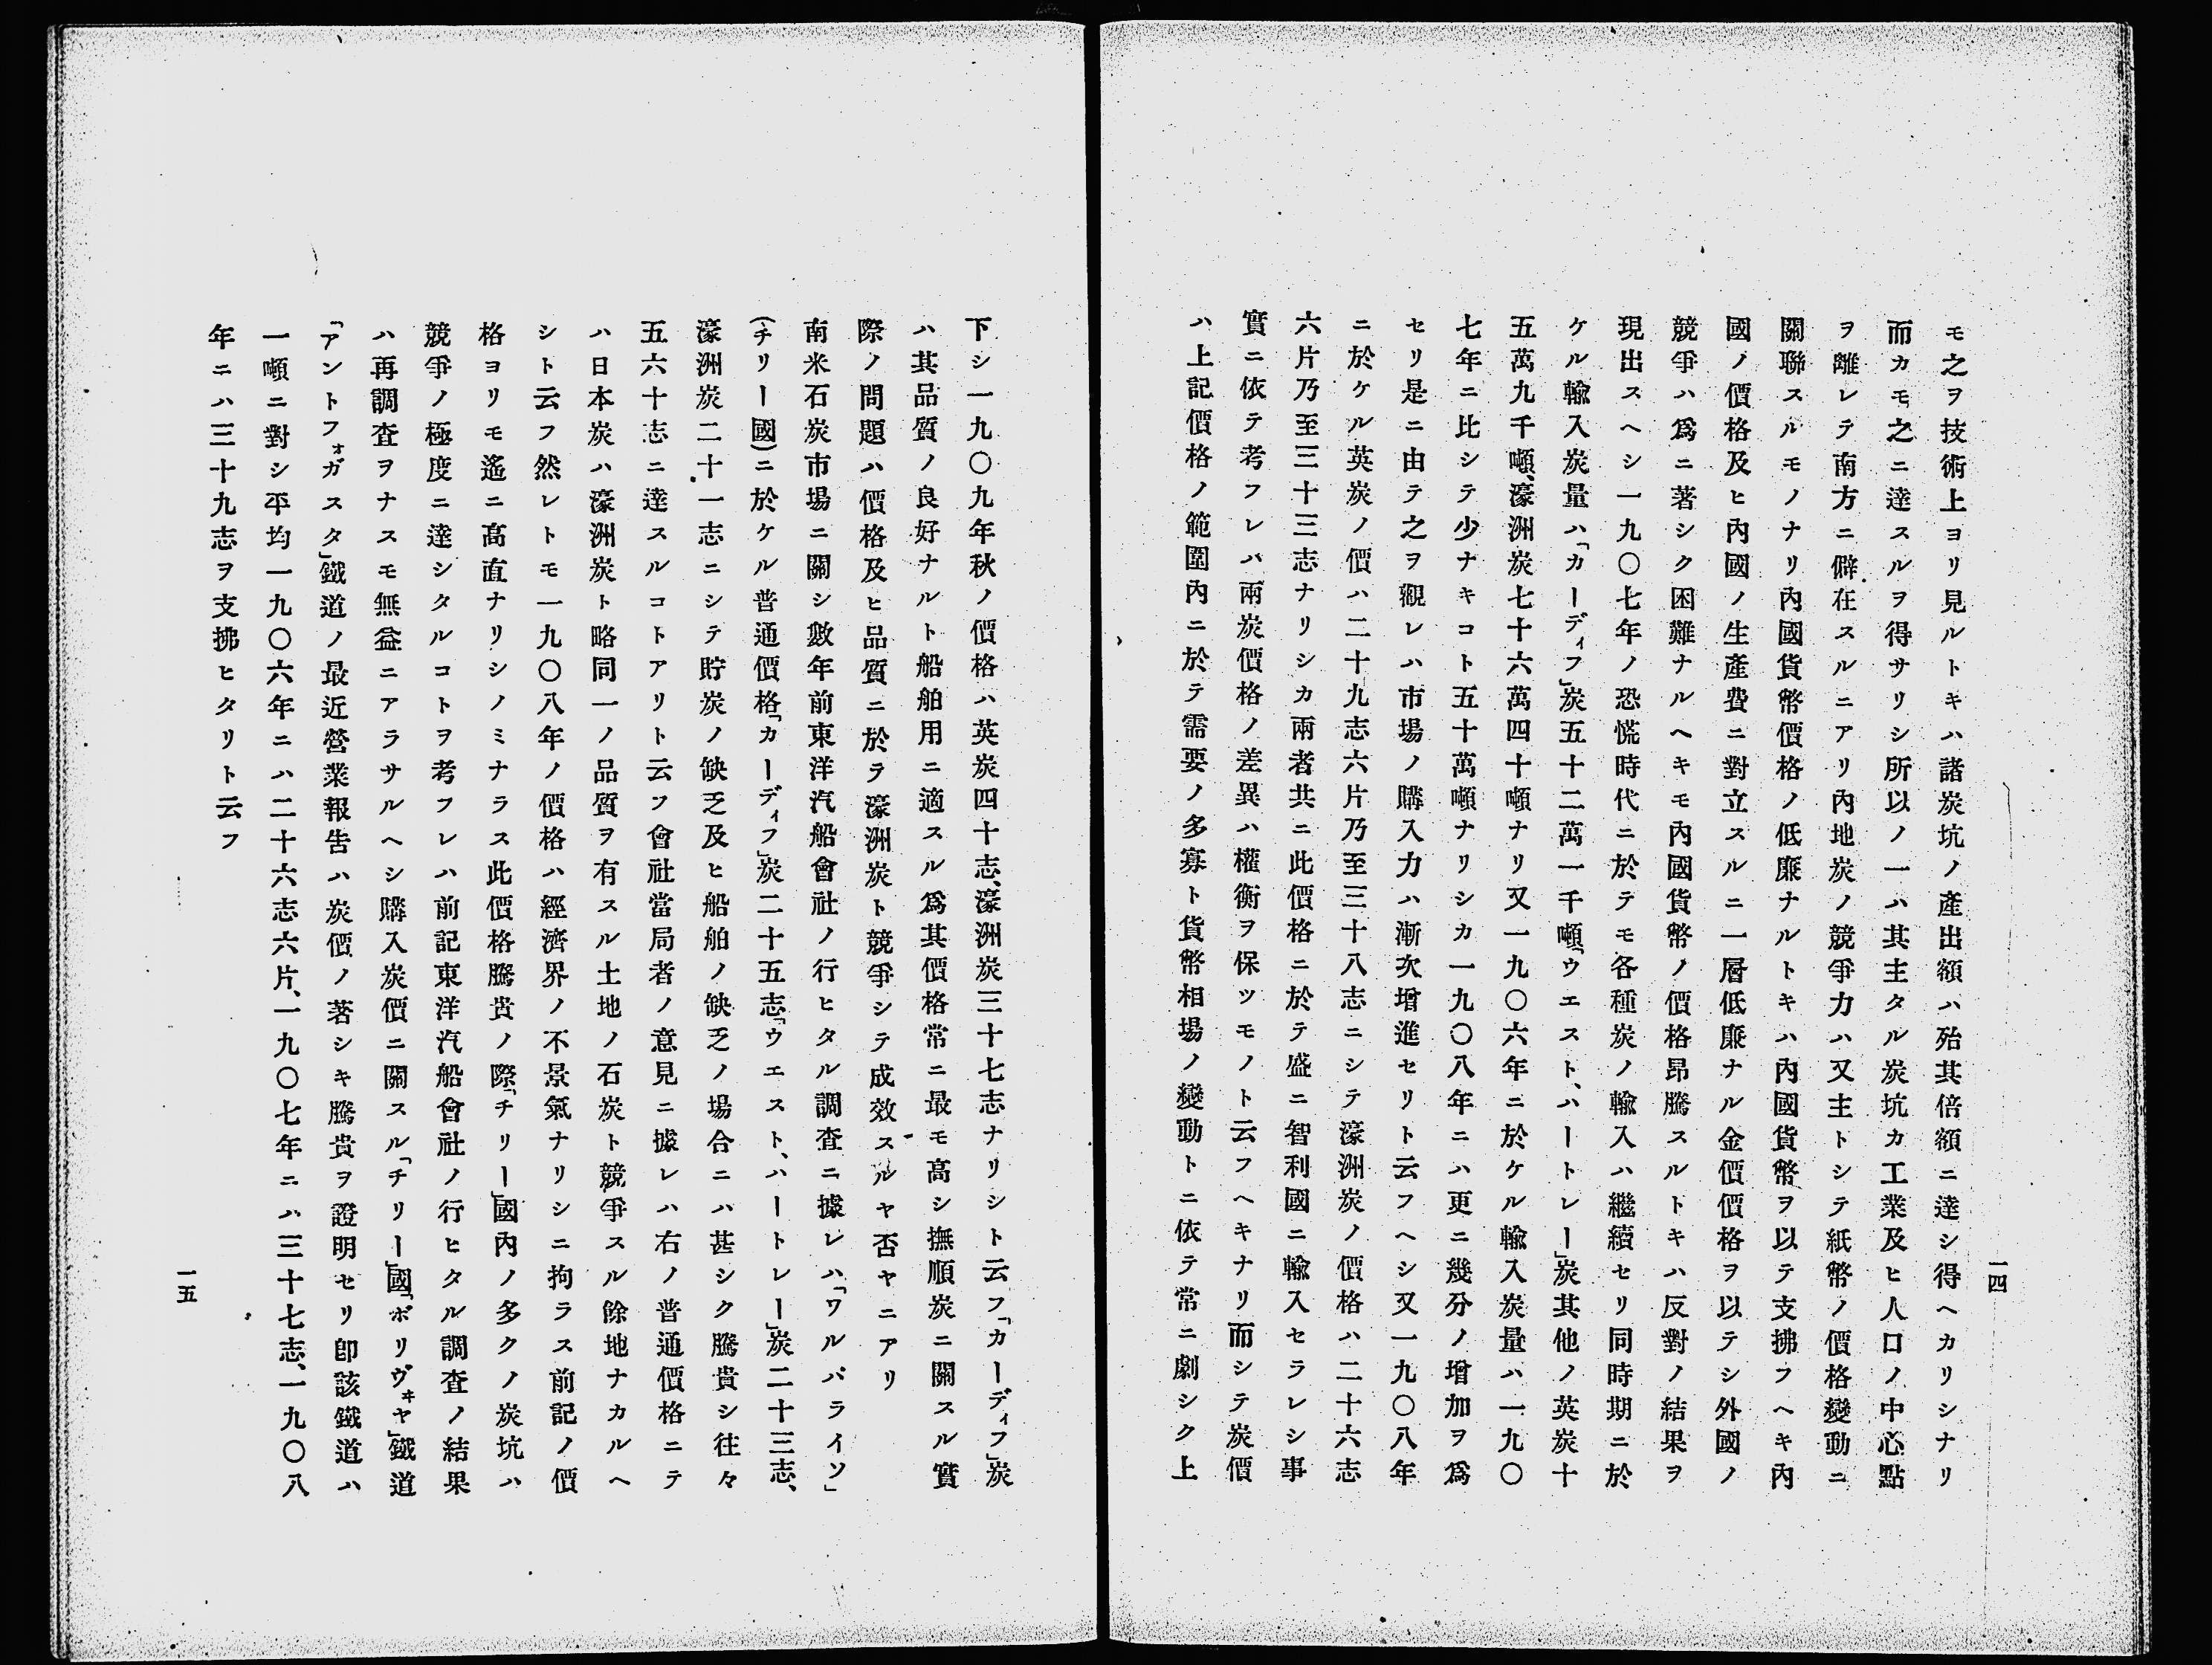 一四
モ之ヲ技術上ヨリ見ルトキハ諸炭坑ノ產出額ハ殆其倍額ニ達シ得ヘカリシナリ
而カモ之ニ達スルヲ得サリシ所以ノ一ハ其主タル炭坑カ工業及ヒ人口ノ中心點
ヲ離レテ南方ニ僻在スルニアリ內地炭ノ競爭力ハ又主トシテ紙幣ノ價格變動ニ
關聯スルモノナリ內國貨幣價格ノ低廉ナルトキハ內國貨幣ヲ以テ支拂フヘキ內
國ノ價格及ヒ內國ノ生產費ニ對立スルニ一層低廉ナル金價價格ヲ以テシ外國ノ
競爭ハ爲ニ著シク困難ナルヘキモ內國貨幣ノ價格昂騰スルトキハ反對ノ結果ヲ
現出スヘシ一九〇七年ノ恐慌時代ニ於テモ各種炭ノ輸入ハ繼續セリ同時期ニ於
ケル輸入炭量ハ「カーディフ」炭五十二萬一千噸「ウエスト、ハートレー」炭其他ノ英炭十
五萬九千噸、濠洲炭七十六萬四十噸ナリ又一九〇六年ニ於ケル輸入炭量ハ一九〇
七年ニ比シテ少ナキコト五十萬噸ナリシカ一九〇八年ニハ更ニ幾分ノ增加ヲ爲
セリ是ニ由テ之ヲ觀レハ市場ノ購入力ハ漸次增進セリト云フヘシ又一九〇八年
ニ於ケル英炭ノ價ハ二十九志六片乃至三十八志ニシテ濠洲炭ノ價格ハ二十六志
六片乃至三十三志ナリシカ兩者共ニ此價格ニ於テ盛ニ智利國ニ輸入セラレシ事
實ニ依テ考フレハ兩炭價格ノ差異ハ權衡ヲ保ツモノト云フヘキナリ而シテ炭價
ハ上記價格ノ範圍內ニ於テ需要ノ多寡ト貨幣相場ノ變動トニ依テ常ニ劇シク上
下シ一九〇九年秋ノ價格ハ英炭四十志、濠洲炭三十七志ナリシト云フ「カーディフ」炭
ハ其品質ノ良好ナルト船舶用ニ適スル爲其價格常ニ最モ高シ撫順炭ニ關スル實
際ノ問題ハ價格及ヒ品質ニ於テ濠洲炭ト競爭シテ成效スルヤ否ヤニアリ
南米石炭市場ニ關シ數年前東洋汽船會社ノ行ヒタル調査ニ據レハ「ワルパライソ」
(チリー國)ニ於ケル普通價格「カーディフ」炭二十五志「ウエスト、ハートレー」炭二十三志、
濠洲炭二十一志ニシテ貯炭ノ缺乏及ヒ船舶ノ缺乏ノ場合ニハ甚シク騰貴シ往々
五六十志ニ達スルコトアリト云フ會社當局者ノ意見ニ據レハ右ノ普通價格ニテ
ハ日本炭ハ濠洲炭ト略同一ノ品質ヲ有スル土地ノ石炭ト競爭スル餘地ナカルヘ
シト云フ然レトモ一九〇八年ノ價格ハ經濟界ノ不景氣ナリシニ拘ラス前記ノ價
格ヨリモ遙ニ高直ナリシノミナラス此價格騰貴ノ際「チリー」國內ノ多クノ炭坑ハ
競爭ノ極度ニ達シタルコトヲ考フレハ前記東洋汽船會社ノ行ヒタル調査ノ結果
ハ再調査ヲナスモ無益ニアラサルヘシ購入炭價ニ關スル「チリー」國「ボリヴヰヤ」鐵道
「アントフォガスタ」鐵道ノ最近營業報吿ハ炭價ノ著シキ騰貴ヲ證明セリ卽該鐵道ハ
一噸ニ對シ平均一九〇六年ニハ二十六志六片、一九〇七年ニハ三十七志、一九〇八
年ニハ三十九志ヲ支拂ヒタリト云フ
一五